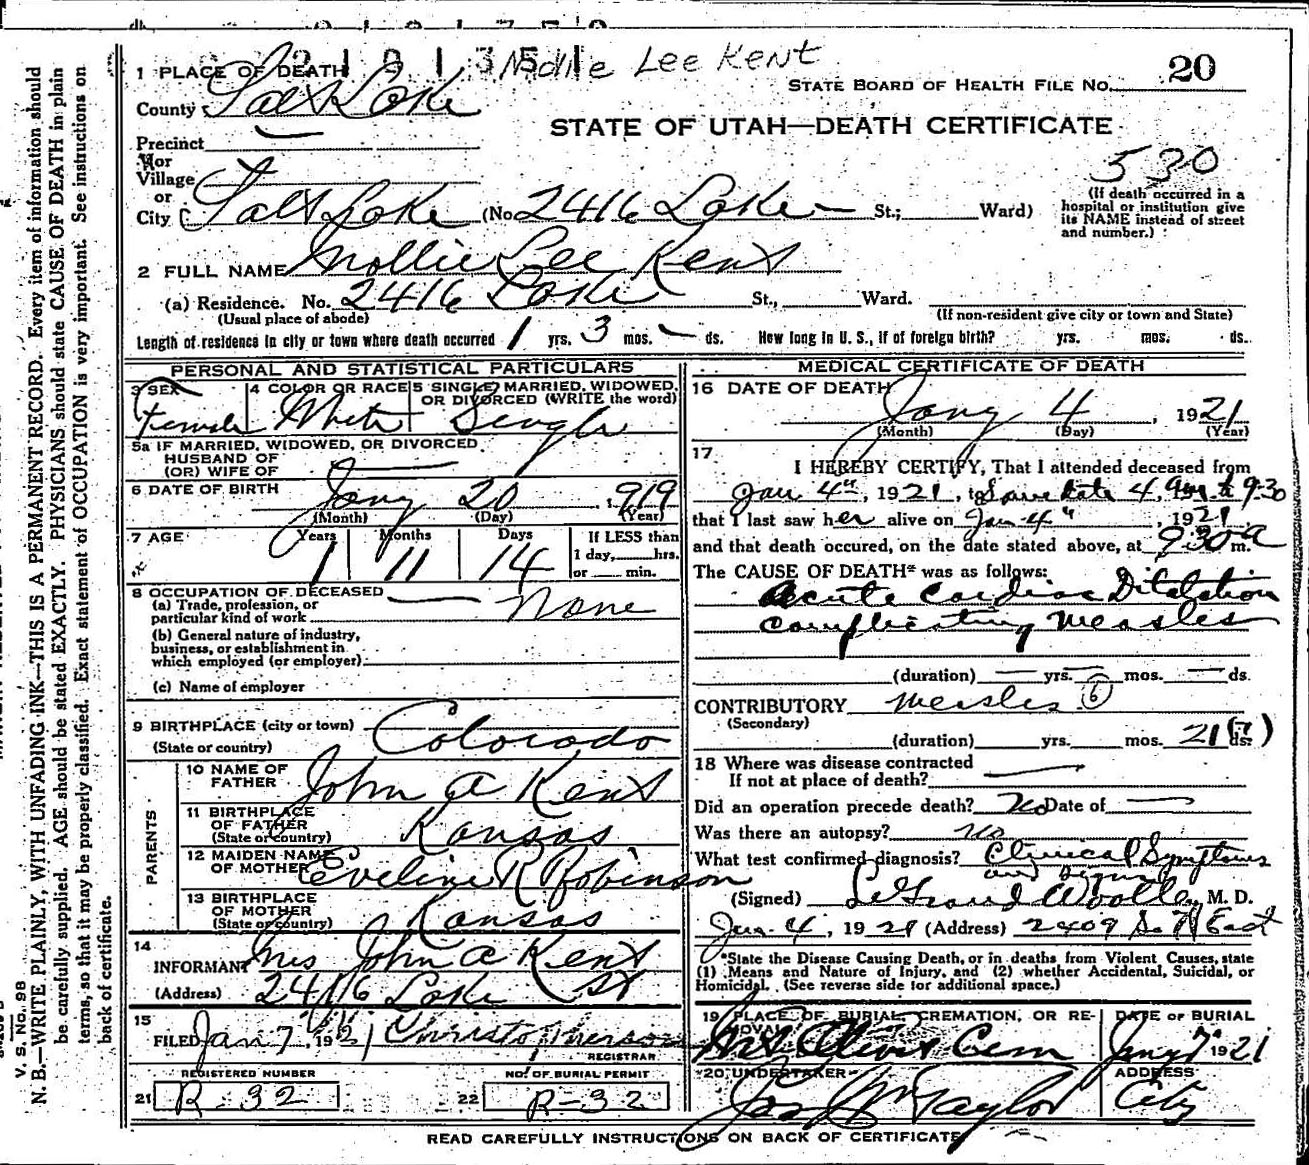 2 1 0 1 3 5 1
Mollie Lee Kent
20
1 PLACE OF DEATH
STATE BOARD OF HEALTH FILE NO.
County Salt Lake
STATE OF UTAH—DEATH CERTIFICATE
Precinct
530
or
Village
or
City Salt Lake (No. 2416 Lake St.; Ward)
(If death occurred in a
hospital or institution give
its NAME instead of street
and number.)
2 FULL NAME Mollie Lee Kent
(a) Residence. No. 2416 Lake St., Ward.
(Usual place of abode)
(If non-resident give city or town and State)
Length of residence in city or town where death occurred 1 yrs. 3 mos. — ds. How long in U. S., if of foreign birth? yrs. mos. ds.
PERSONAL AND STATISTICAL PARTICULARS
3 SEX
Female
4 COLOR OR RACE
White
5 SINGLE, MARRIED, WIDOWED,
OR DIVORCED (WRITE the word)
Single
5a IF MARRIED, WIDOWED, OR DIVORCED
HUSBAND OF
(OR) WIFE OF
6 DATE OF BIRTH Jany 20, 1919
(Month) (Day) (Year)
7 AGE Years Months Days
1 11 14
If LESS than
1 day, hrs.
or min.
8 OCCUPATION OF DECEASED
(a) Trade, profession, or
particular kind of work None
(b) General nature of industry,
business, or establishment in
which employed (or employer)
(c) Name of employer
9 BIRTHPLACE (city or town)
(State or country) Colorado
PARENTS
10 NAME OF
FATHER John A Kent
11 BIRTHPLACE
OF FATHER
(State or country) Kansas
12 MAIDEN NAME
OF MOTHER Eveline R Robinson
13 BIRTHPLACE
OF MOTHER
(State or country) Kansas
14
INFORMANT Mrs John A Kent
(Address) 2416 Lake St
15
FILED Jan 7 1921 Christopherson
REGISTRAR
REGISTERED NUMBER
21 R-32
NO. OF BURIAL PERMIT
22 R-32
MEDICAL CERTIFICATE OF DEATH
16 DATE OF DEATH
Jany 4, 1921
(Month) (Day) (Year)
17
I HEREBY CERTIFY, That I attended deceased from
Jan 4th, 1921, to Same date 9:30
that I last saw her alive on Jan 4", 1921
and that death occured, on the date stated above, at 9:30 a m.
The CAUSE OF DEATH* was as follows:
Acute Cardiac Dilatation
complicating Measles
(duration) — yrs. — mos. — ds.
CONTRIBUTORY Measles 6
(Secondary)
(duration) yrs. mos. 21 (7) ds.
18 Where was disease contracted
If not at place of death?
Did an operation precede death? No Date of —
Was there an autopsy? no
What test confirmed diagnosis? Clinical Symptoms
and signs
(Signed) LeGrand Woolley, M. D.
Jan. 4, 1921 (Address) 2409 So 7 East
*State the Disease Causing Death, or in deaths from Violent Causes, state
(1) Means and Nature of Injury, and (2) whether Accidental, Suicidal, or
Homicidal. (See reverse side for additional space.)
19 PLACE OF BURIAL, CREMATION, OR RE-
MOVAL
Mt Olivet Cem
DATE OF BURIAL
Jany 7 1921
20 UNDERTAKER
Jos Wm Taylor
ADDRESS
City
READ CAREFULLY INSTRUCTIONS ON BACK OF CERTIFICATE
V. S. No. 98
N. B.—WRITE PLAINLY, WITH UNFADING INK—THIS IS A PERMANENT RECORD. Every item of information should
be carefully supplied. AGE should be stated EXACTLY. PHYSICIANS should state CAUSE OF DEATH in plain
terms, so that it may be properly classified. Exact statement of OCCUPATION is very important. See instructions on
back of certificate.